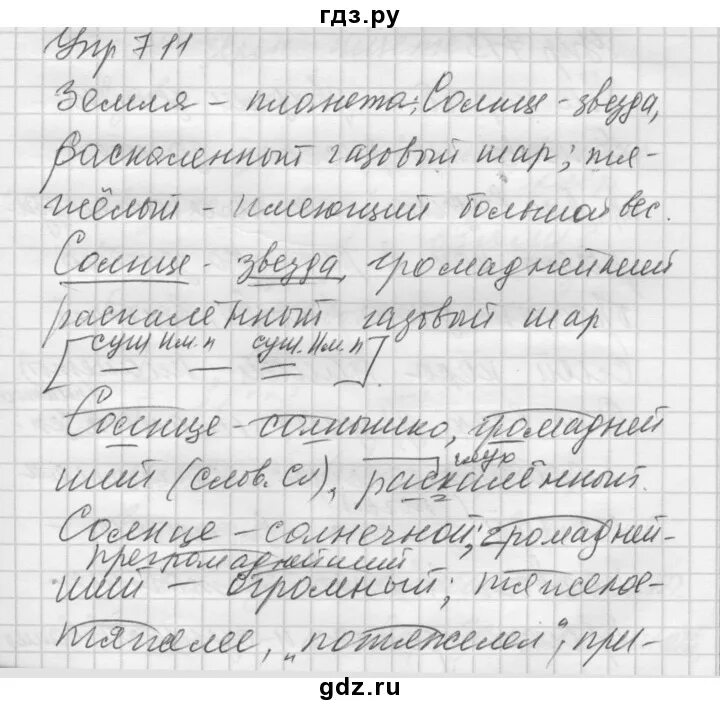 гдз.ру
Упр 711
Земля – планета; Солнце – звезда,
раскаленный газовый шар; тя-
жёлый – имеющий большой вес.
Солнце – звезда, громаднейший
раскалённый газовый шар
[сущ Им.п – сущ. Им.п].
Солнце – солнышко, громадней
ший (слов. сл), раскалённый.
глух
Солнце – солнечной; громадней-
прегромаднейший
ший – огромный; тяжелое –
тяжелее, „потяжелел", при-
gdz.ru